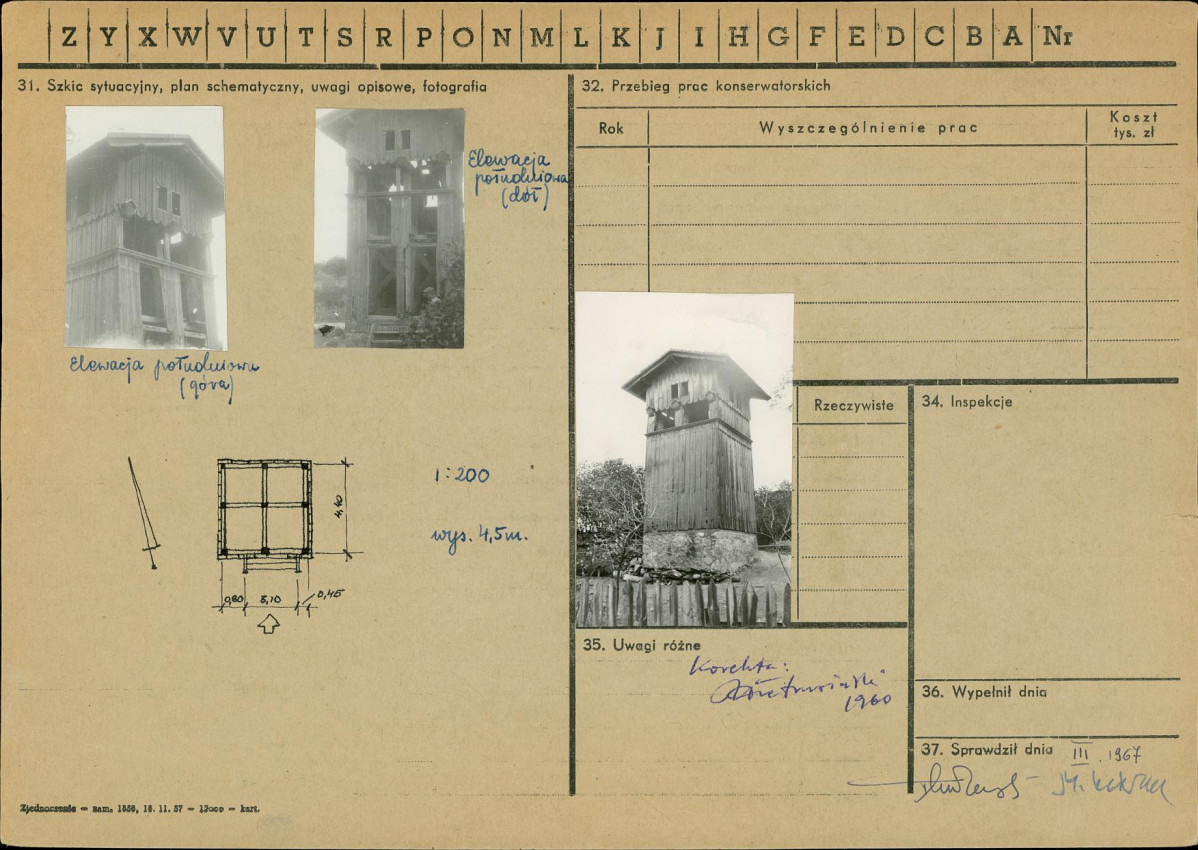 Z Y X W V U T S R P O N M L K J I H G F E D C B A Nr
31. Szkic sytuacyjny, plan schematyczny, uwagi opisowe, fotografia
Elewacja
południowa
(dół)
Elewacja południowa
(góra)
1:200
wys. 4,5m.
4,40
0,80 3,10 0,45
Zjednoczenie — zam. 1856, 16. 11. 57 — 12000 — kart.
32. Przebieg prac konserwatorskich
Rok
Wyszczególnienie prac
Koszt
tys. zł
Rzeczywiste
34. Inspekcje
35. Uwagi różne
Korekta:
1960
36. Wypełnił dnia
37. Sprawdził dnia III. 1967